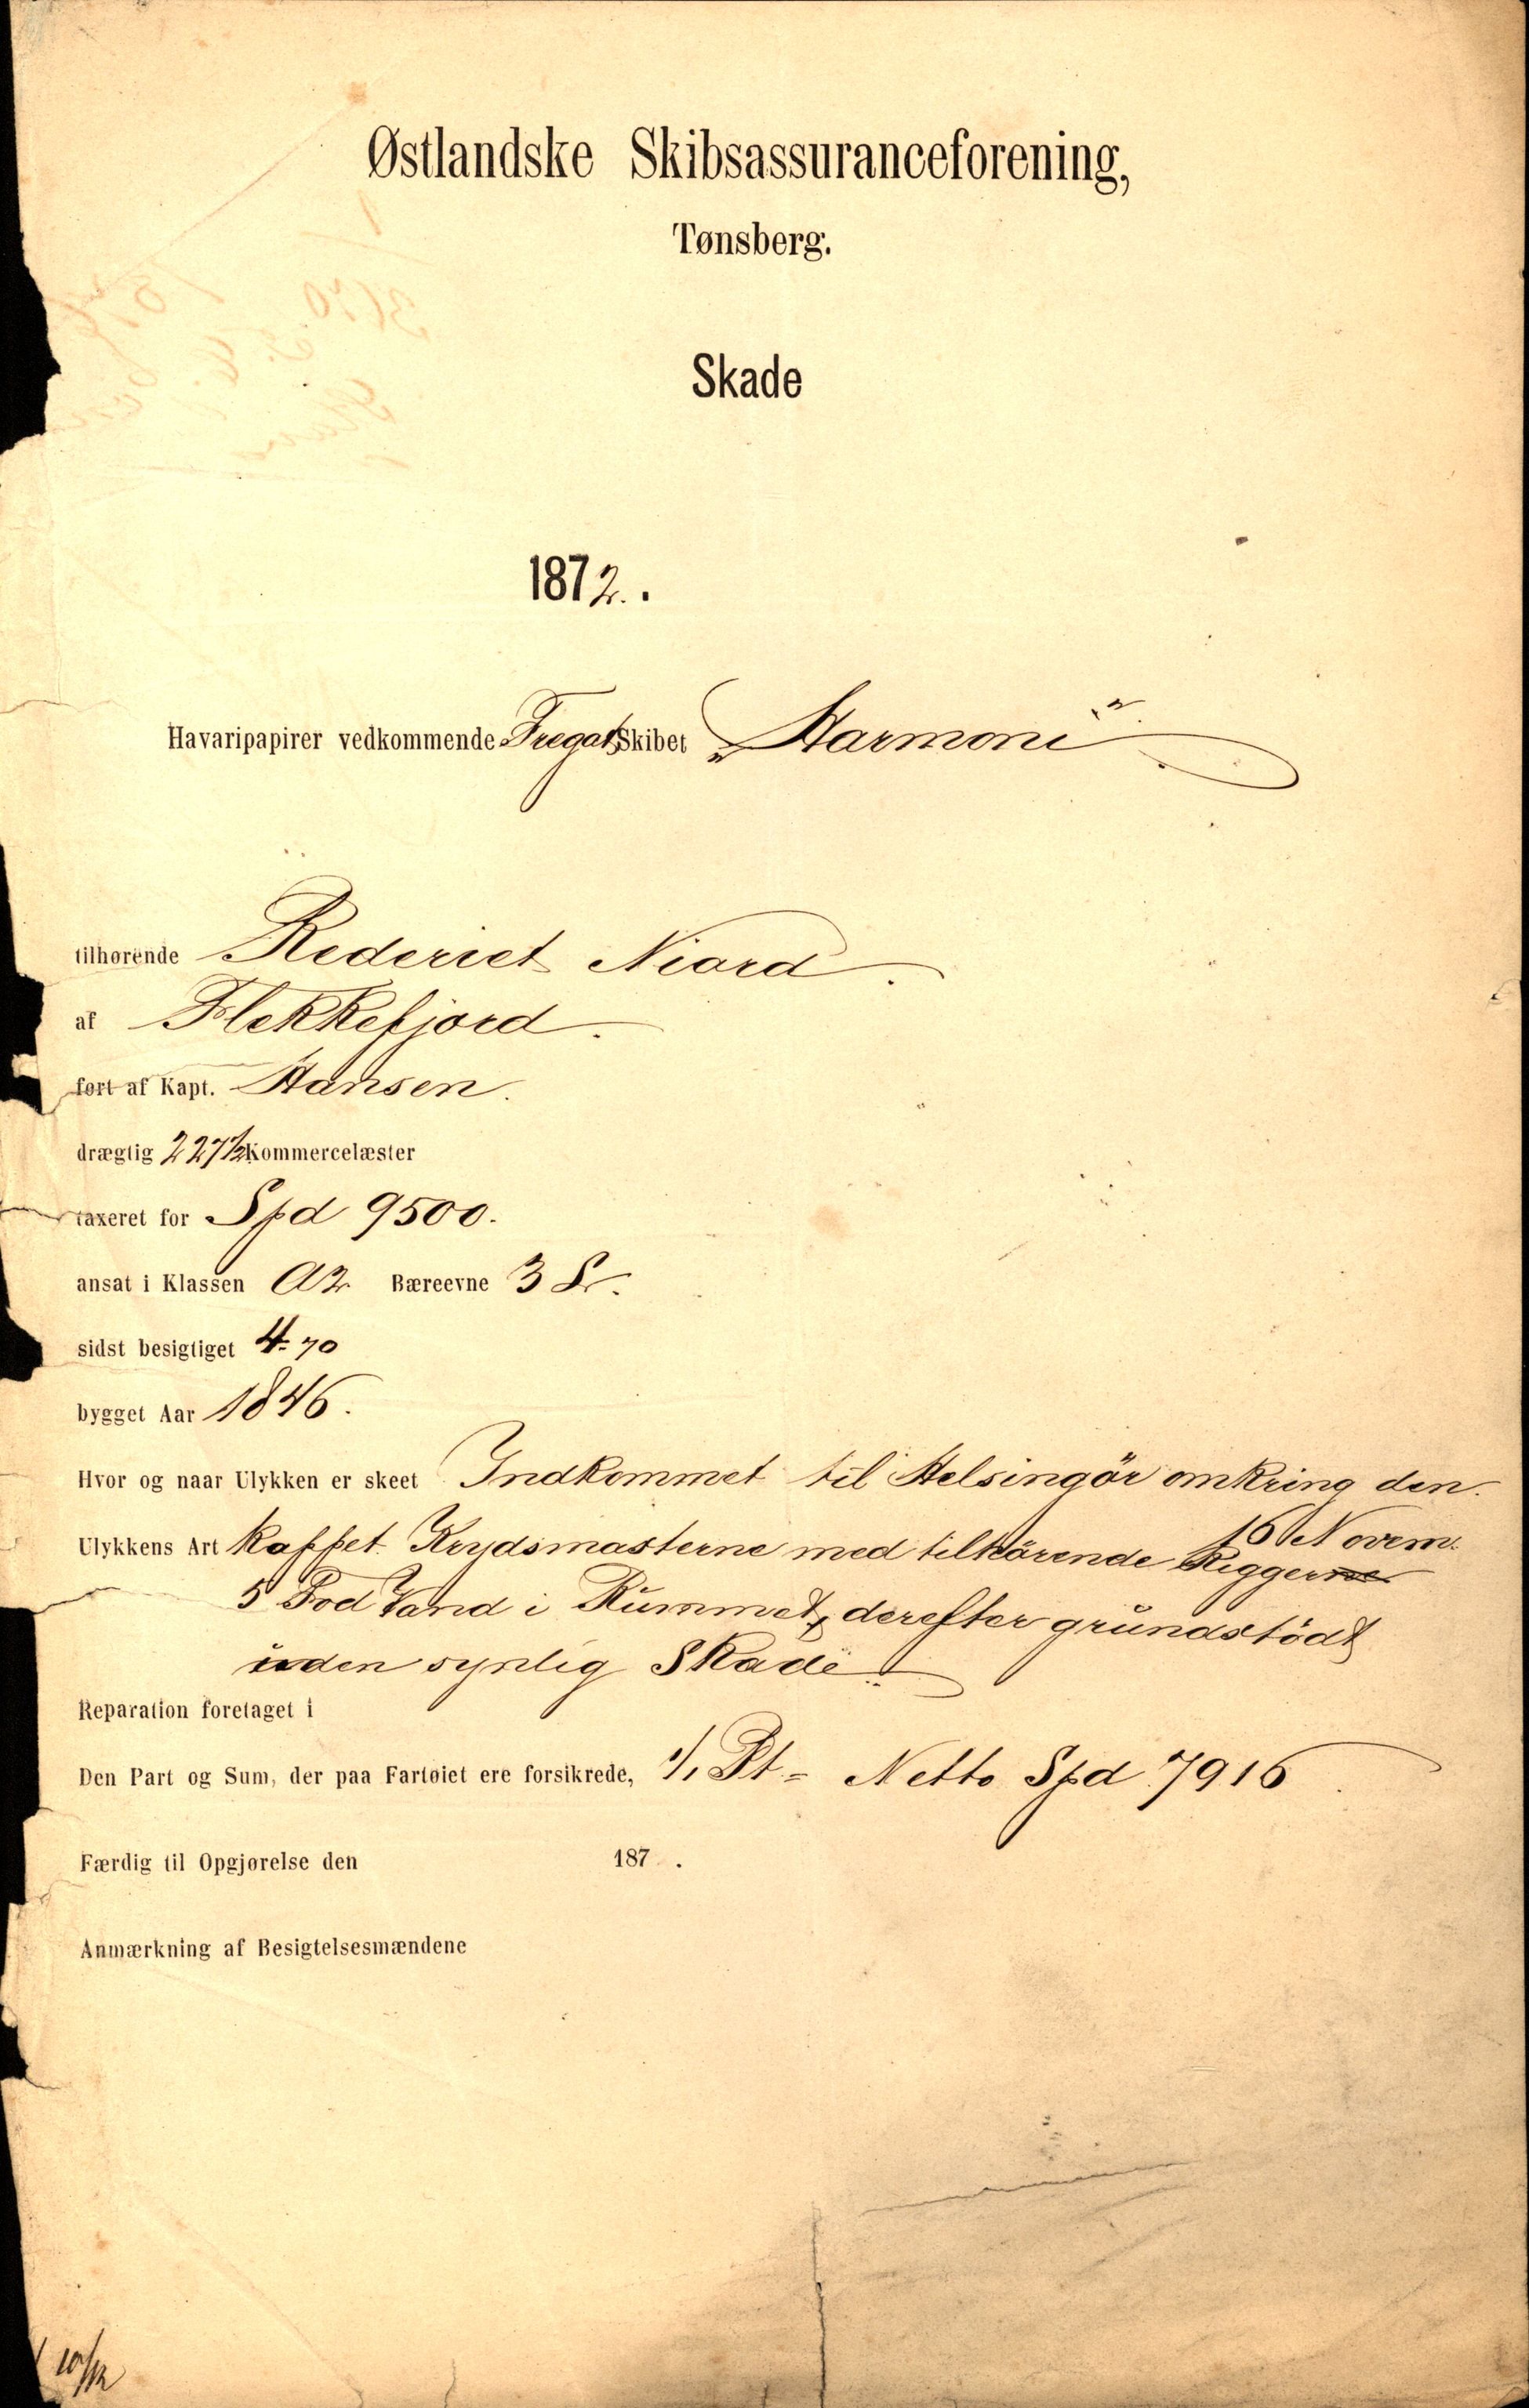 Østlandske Skibsassuranceforening,
Tønsberg.
Skade
1872.
Havaripapirer vedkommende Fregatskibet „Harmoni"
tilhørende Rederiet Niord.
af Flekkefjord.
ført af Kapt. Hansen.
drægtig 227½ Kommercelæster
taxeret for Spd 9500.
ansat i Klassen A2 Bæreevne 3 S.
sidst besigtiget 4-70
bygget Aar 1846.
Hvor og naar Ulykken er skeet Indkommet til Helsingör omkring den
16 Novem.
Ulykkens Art kappet Krydsmasterne med tilhörende Rigger
5 Fod Vand i Rummet, derefter grundstödt
uden synlig Skade
Reparation foretaget i
Den Part og Sum, der paa Fartøiet ere forsikrede, 1/1 Pt = Netto Spd 7916
Færdig til Opgjørelse den 187 .
Anmærkning af Besigtelsesmændene
10/12